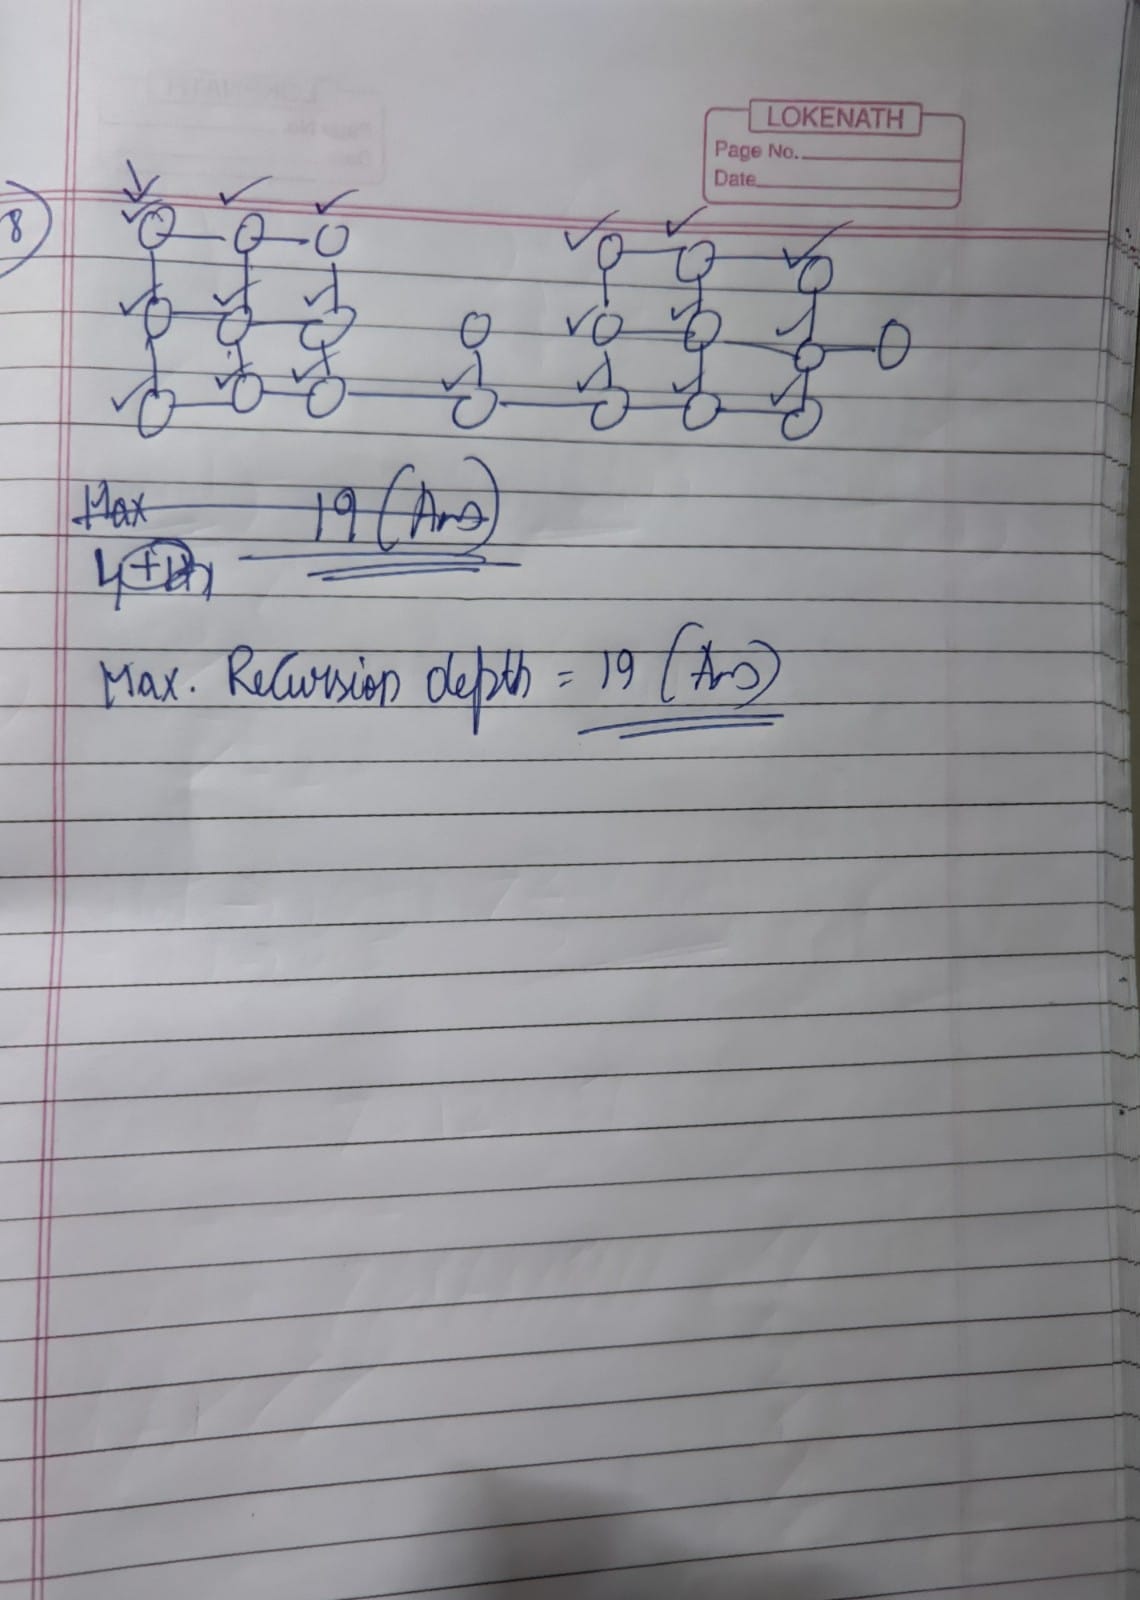 LOKENATH
Page No.
Date
8
Max 19 (Ans)
Max. Recursion depth = 19 (Ans)